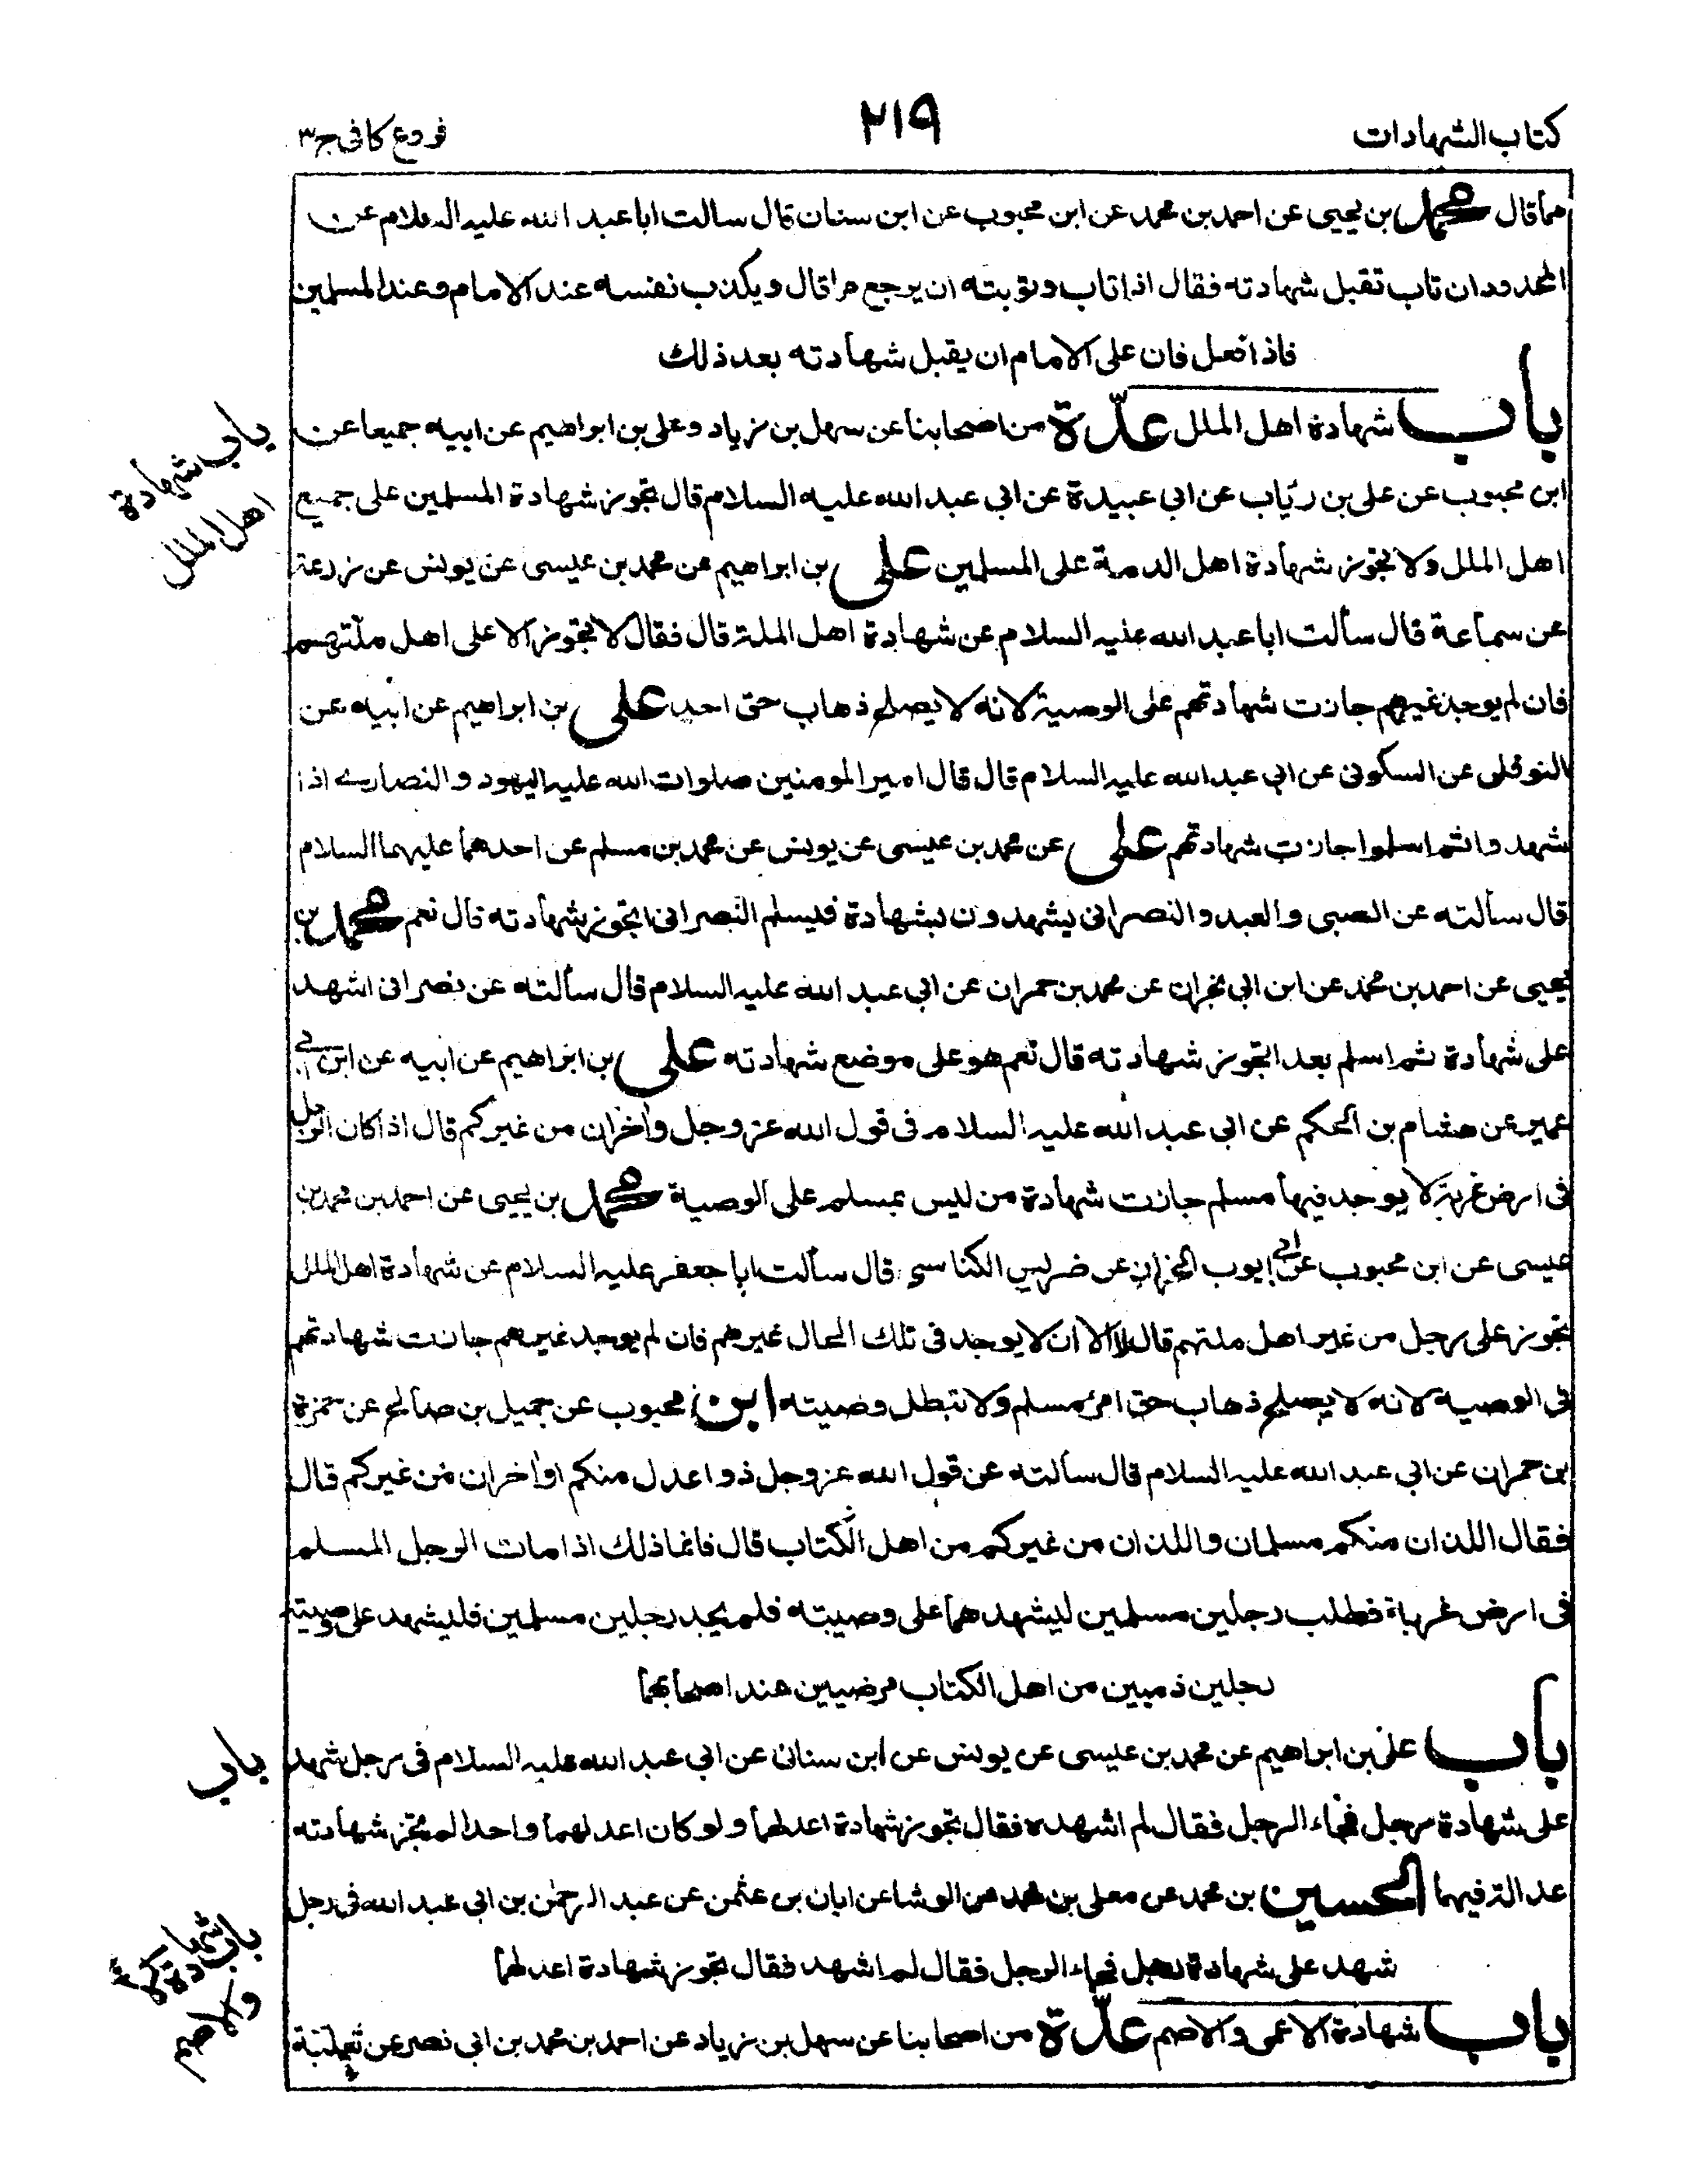 كتاب الشهادات
٢١٩
فروع كافى ج٣
مما قال محمد بن يحيى عن احمد بن محمد عن ابن محبوب عن ابن سنان قال سالت ابا عبد الله عليه السلام عن
المحدود ان تاب تقبل شهادته فقال اذا تاب وتوبته ان يرجع مما قال ويكذب نفسه عند الامام وعند المسلمين
فاذا فعل فان على الامام ان يقبل شهادته بعد ذلك
باب شهادة اهل الملل عدّة من اصحابنا عن سهل بن زياد وعلى بن ابراهيم عن ابيه جميعا عن
ابن محبوب عن على بن رئاب عن ابي عبيدة عن ابي عبد الله عليه السلام قال تجوز شهادة المسلمين على جميع
اهل الملل ولا تجوز شهادة اهل الذمة على المسلمين على بن ابراهيم عن محمد بن عيسى عن يونس عن زرعة
عن سماعة قال سألت ابا عبد الله عليه السلام عن شهادة اهل الملة قال فقال لا تجوز الا على اهل ملّتهم
فان لم يوجد غيرهم جازت شهادتهم على الوصية لانه لا يصلح ذهاب حق احد على بن ابراهيم عن ابيه عن
النوفلى عن السكونى عن ابي عبد الله عليه السلام قال قال امير المومنين صلوات الله عليه اليهود والنصارى اذا
شهدوا ثم اسلموا جازت شهادتهم على عن محمد بن عيسى عن يونس عن محمد بن مسلم عن احدهما عليهما السلام
قال سألته عن الصبى والعبد والنصرانى يشهدون بشهادة فيسلم النصرانى اتجوز شهادته قال نعم محمد بن
يحيى عن احمد بن محمد عن ابن ابي نجران عن محمد بن حمران عن ابي عبد الله عليه السلام قال سألته عن نصرانى اشهد
على شهادة ثم اسلم بعد اتجوز شهادته قال نعم هو على موضع شهادته على بن ابراهيم عن ابيه عن ابن ابي
عمير عن هشام بن الحكم عن ابي عبد الله عليه السلام فى قول الله عز وجل واخران من غيركم قال اذا كان الرجل
فى ارض غربة لا يوجد فيها مسلم جازت شهادة من ليس بمسلم على الوصية محمد بن يحيى عن احمد بن محمد بن
عيسى عن ابن محبوب عن ابي ايوب الخزاز عن ضريس الكناسي قال سألت ابا جعفر عليه السلام عن شهادة اهل الملل
تجوز على رجل من غير اهل ملتهم قال لا الا ان لا يوجد فى تلك الحال غيرهم فان لم يوجد غيرهم جازت شهادتهم
فى الوصيه لانه لا يصلح ذهاب حق امرئ مسلم ولا تبطل وصيته ابن محبوب عن جميل بن صالح عن حمزة
بن حمران عن ابي عبد الله عليه السلام قال سألته عن قول الله عز وجل ذوا عدل منكم او اخران من غيركم قال
فقال اللذان منكم مسلمان واللذان من غيركم من اهل الكتاب قال فانما ذلك اذا مات الرجل المسلم
فى ارض غرباة فطلب رجلين مسلمين ليشهدهما على وصيته فلم يجد رجلين مسلمين فليشهد على وصيته
رجلين ذميين من اهل الكتاب مرضيين عند اصحابهما
باب على بن ابراهيم عن محمد بن عيسى عن يونس عن ابن سنان عن ابي عبد الله عليه السلام فى رجل شهد
على شهادة رجل فجاء الرجل فقال لم اشهده فقال تجوز شهادة اعدلهما ولو كان اعدلهما واحدا لم تجز شهادته
عدالة فيهما الحسين بن محمد عن معلى بن محمد عن الوشا عن ابان بن عثمن عن عبد الرحمن بن ابي عبد الله فى رجل
شهد على شهادة رجل فجاء الرجل فقال لم اشهد فقال تجوز شهادة اعدلهما
باب شهادة الاعمى والاصم عدّة من اصحابنا عن سهل بن زياد عن احمد بن محمد بن ابى نصر عن ثعلبة
باب شهادة
اهل الملل
باب
باب شهادة
والاصم